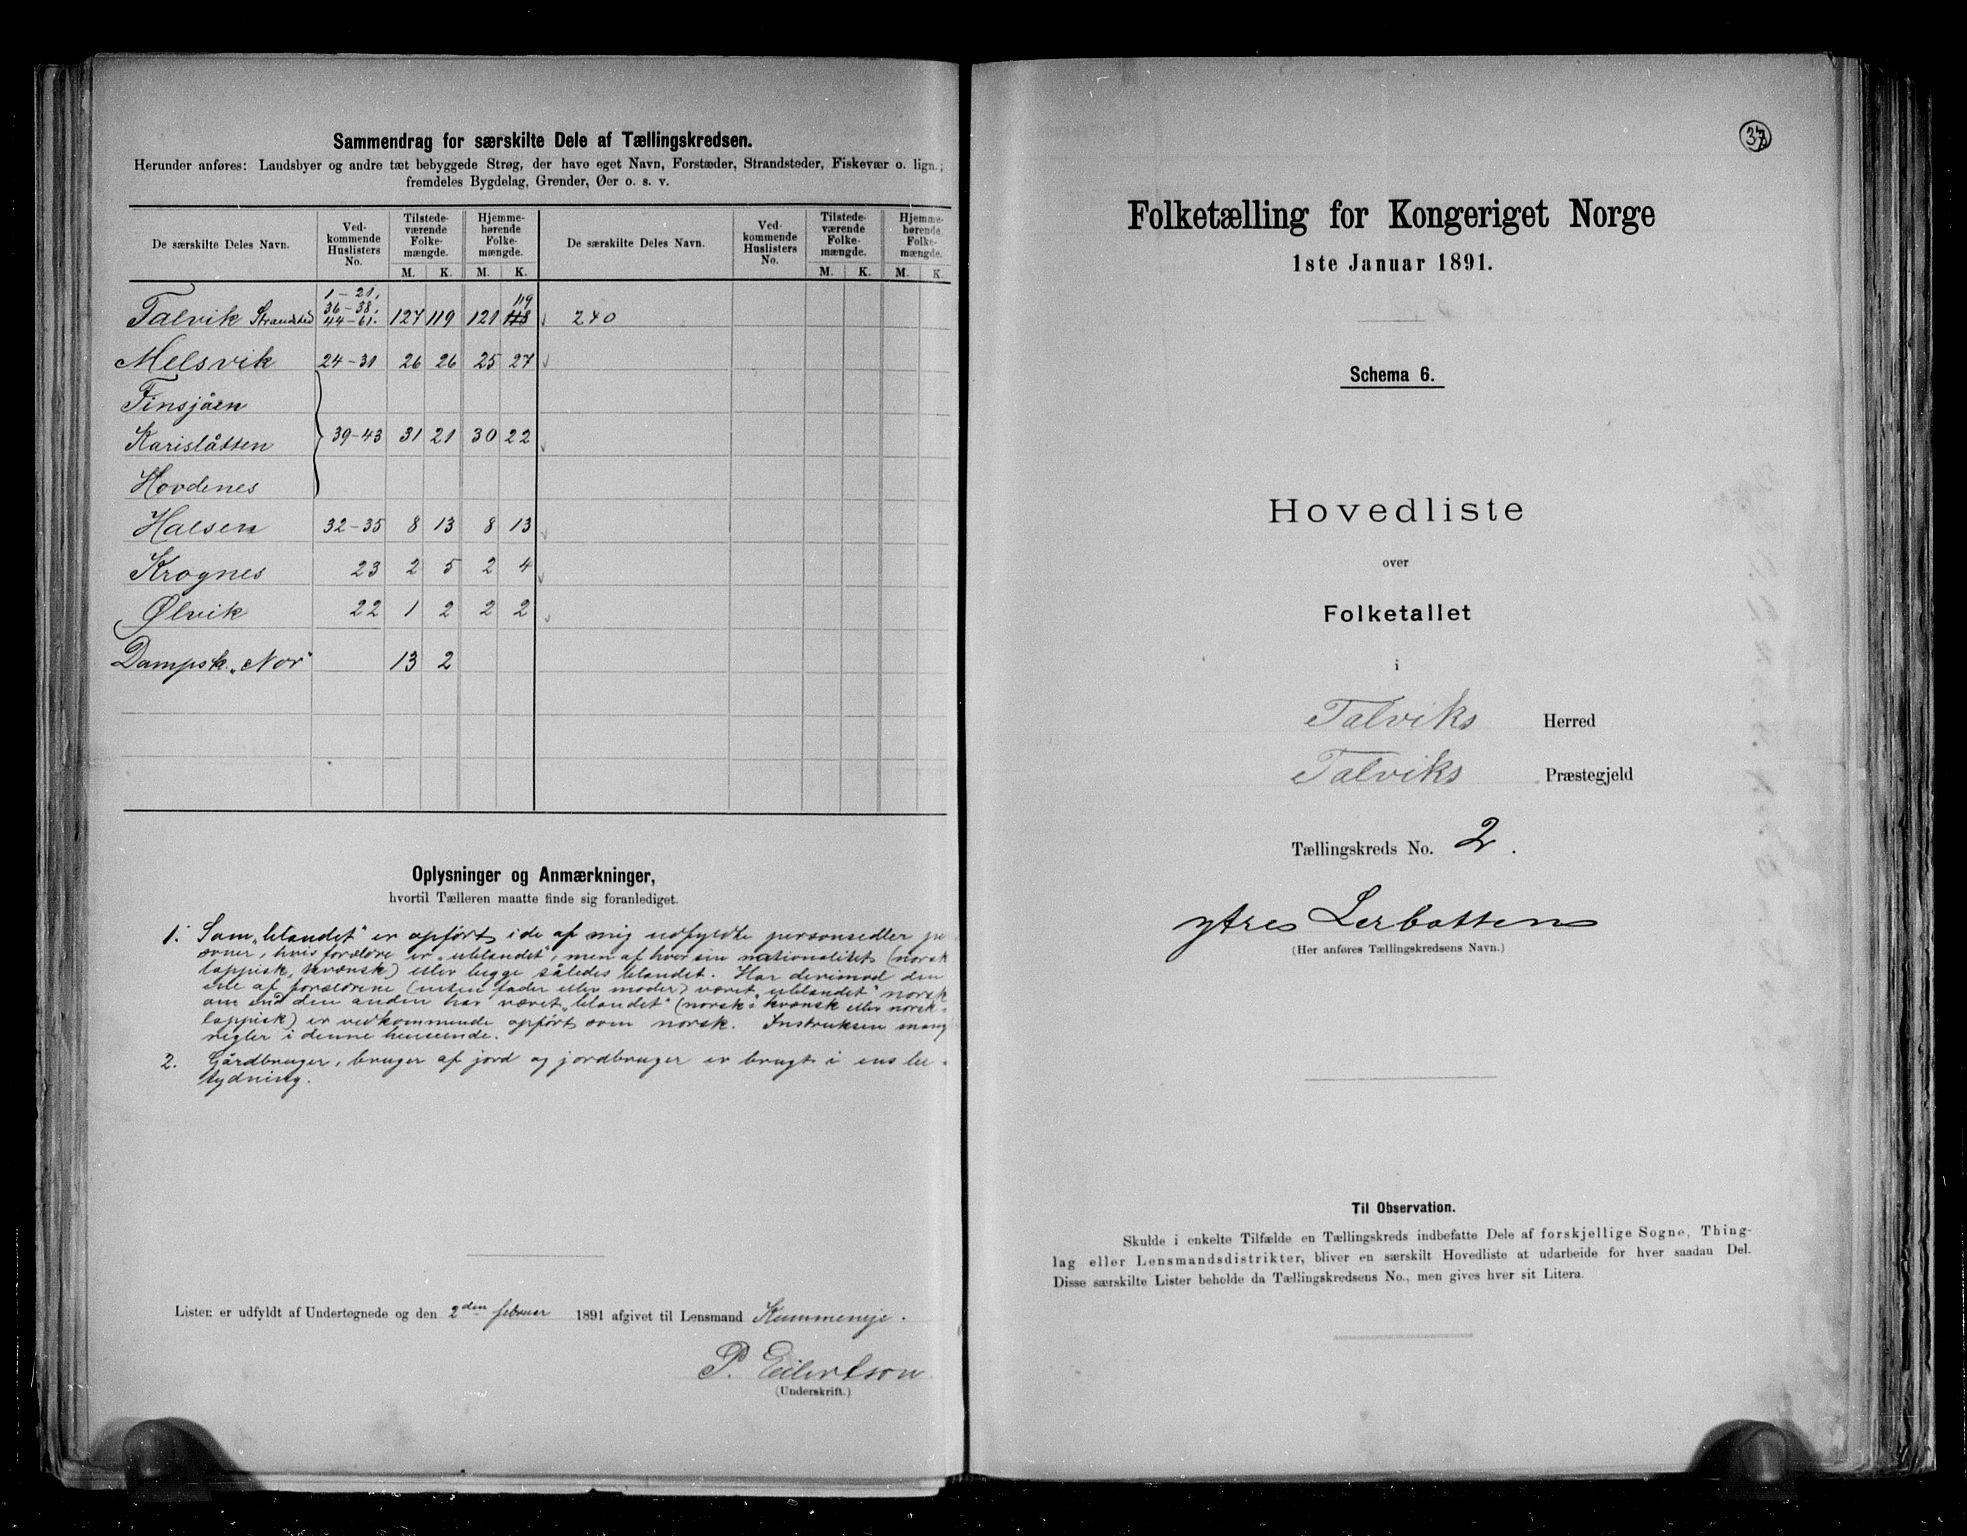 Sammendrag for særskilte Dele af Tællingskredsen.
Herunder anføres: Landsbyer og andre tæt bebyggede Strøg, der have eget Navn, Forstæder, Strandsteder, Fiskevær o. lign.;
fremdeles Bygdelag, Grender, Øer o. s. v.
De særskilte Deles Navn. Ved-kommende Huslisters No. Tilstede-værende Folke-mængde. Hjemme-hørende Folke-mængde. De særskilte Deles Navn. Ved-kommende Huslisters No. Tilstede-værende Folke-mængde. Hjemme-hørende Folke-mængde.
M. K. M. K. M. K. M. K.
Talvik Strandsted 1-21, 36-38, 44-61. 127 119 121 118 119 240
Melsvik 24-31 26 26 25 27
Finsjåen
Karislåtten 39-43 31 21 30 22
Hovdenes
Halsen 32-35 8 13 8 13
Krognes 23 2 5 2 4
Ølvik 22 1 2 2 2
Dampsk. „Nor" 13 2
Oplysninger og Anmærkninger,
hvortil Tælleren maatte finde sig foranlediget.
1. Som „blandet" er opført i de af mig udfyldte personsedler pe
soner, hvis forældre er „ublandet", men af hver sin nationalitet (norsk
lappisk, kvænsk) eller begge således blandet. Har derimod den
ene af forældrene (enten fader eller moder) været „ublandet" norsk
om end den anden har været „blandet" (norsk-kvænsk eller norsk-
lappisk) er vedkommende opført som norsk. Instruksen mang
regler i denne henseende.
2. Gårdbruger, bruger af jord og jordbruger er brugt i ens be-
tydning.
Listen er udfyldt af Undertegnede og den 2den februar 1891 afgivet til Lensmand Kummeneje.
P. Eilertson
(Underskrift.)
37
Folketælling for Kongeriget Norge
1ste Januar 1891.
Schema 6.
Hovedliste
over
Folketallet
i
Talviks Herred
Talviks Præstegjeld
Tællingskreds No. 2.
ytres Lerbotten
(Her anføres Tællingskredsens Navn.)
Til Observation.
Skulde i enkelte Tilfælde en Tællingskreds indbefatte Dele af forskjellige Sogne, Thing-
lag eller Lensmandsdistrikter, bliver en særskilt Hovedliste at udarbeide for hver saadan Del.
Disse særskilte Lister beholde da Tællingskredsens No., men gives hver sit Litera.